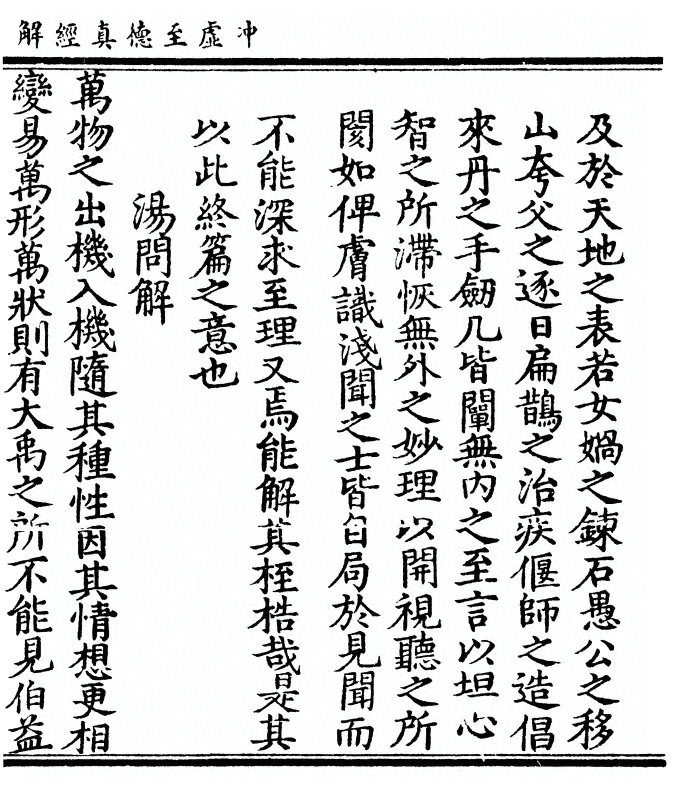 冲虛至德真經解
及於天地之表若女媧之鍊石愚公之移
山夸父之逐日扁鵲之治疾偃師之造倡
來丹之手劒凡皆闡無内之至言以坦心
智之所滯恢無外之妙理以開視聽之所
閡如俾膚識淺聞之士皆自局於見聞而
不能深求至理又焉能解其桎梏哉是其
以此終篇之意也
湯問解
萬物之出機入機隨其種性因其情想更相
變易萬形萬狀則有大禹之所不能見伯益